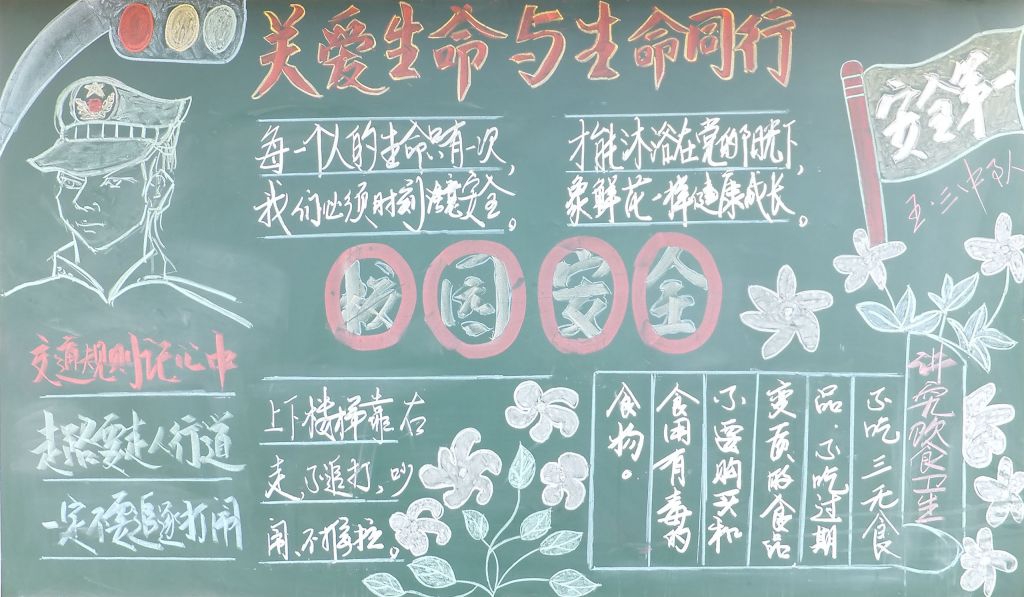 关爱生命与生命同行
安全第一
五·三中队
每一个人的生命只有一次,
我们必须时刻注意安全。
才能沐浴在党的阳光下,
象鲜花一样健康成长。
校园安全
交通规则记心中
走路要走人行道
一定不要追逐打闹
上下楼梯靠右
走,不追打,吵
闹、不推拉。
讲究饮食卫生
不吃三无食
品,不吃过期
变质的食品
不要购买和
食用有毒的
食物。